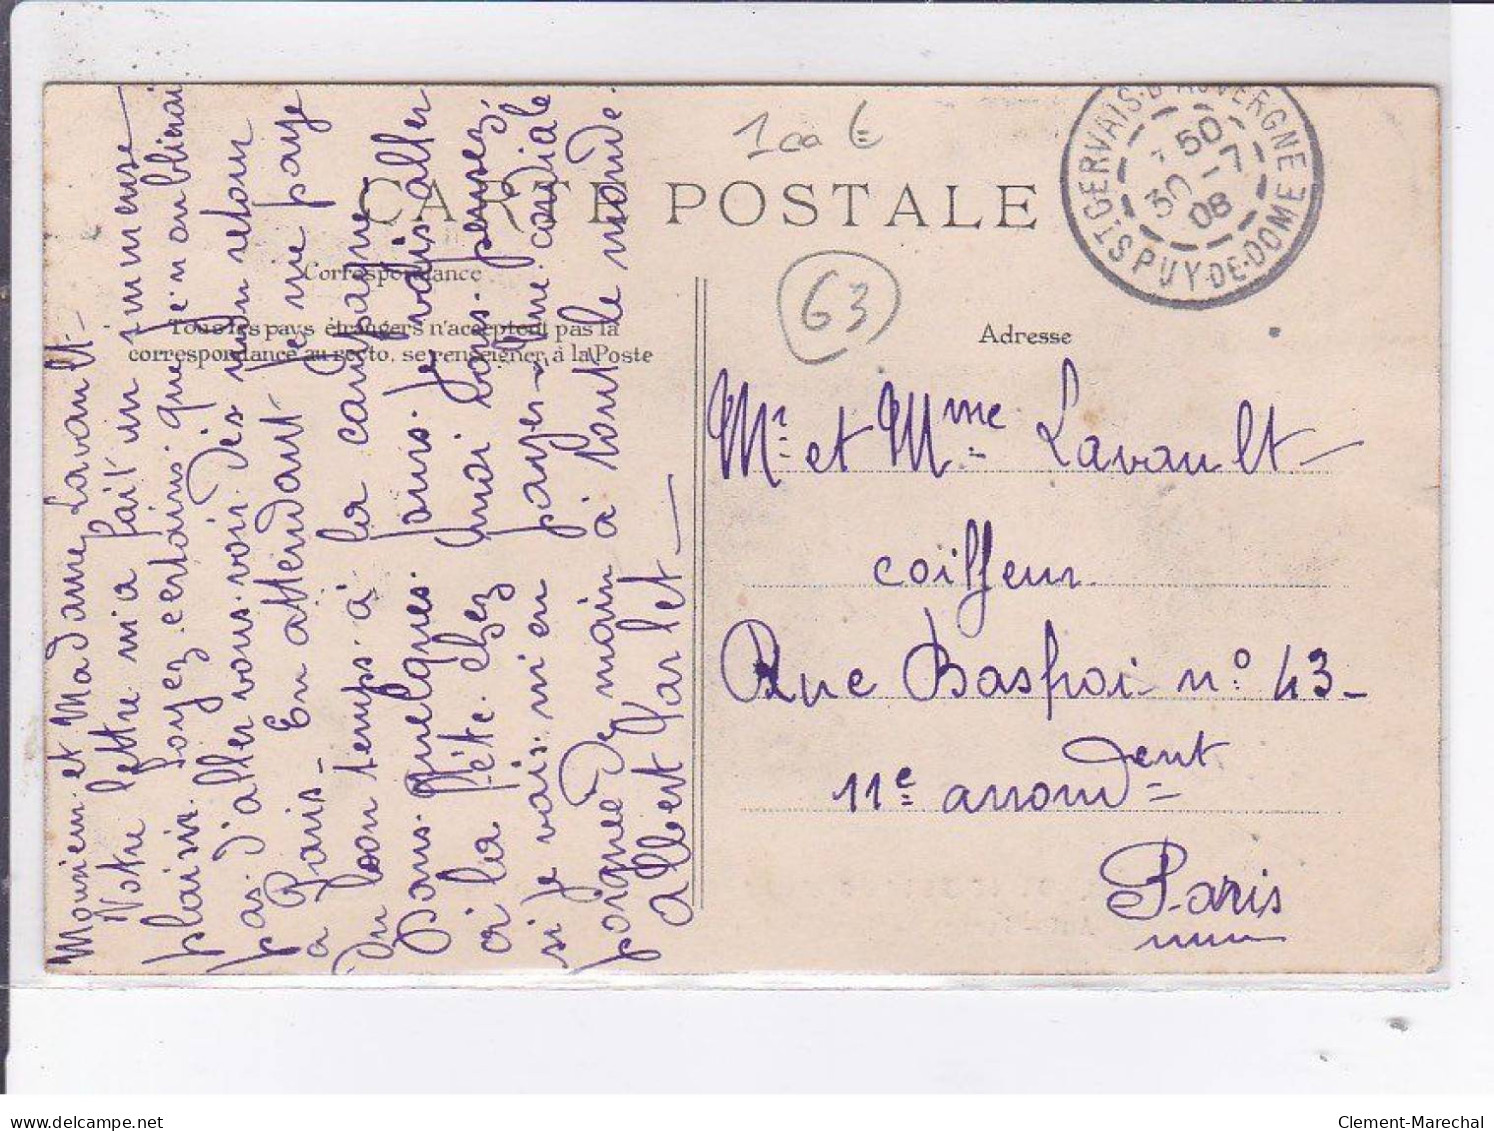 100 €
CARTE POSTALE
ST GERVAIS-D'AUVERGNE PUY-DE-DOME
50
30 - 7
08
63
Correspondance
Tous les pays étrangers n'acceptent pas la
correspondance au recto, se renseigner à la Poste
Adresse
Monsieur et Madame Lavault -
Votre lettre m'a fait un immense
plaisir. Soyez certains que je n'oublierai
pas d'aller vous voir dès mon retour
à Paris - En attendant je me paye
du bon temps à la campagne
Dans quelques jours je vais aller
à la fête chez moi vous pensez
si je vais m'en payer - Une cordiale
poignée de main à tout le monde.
Albert
Mr. et Mme Lavault -
coiffeur
Rue Basfroi - n° 43 -
11e arrondent
Paris
delcampe.net
Clement-Marechal